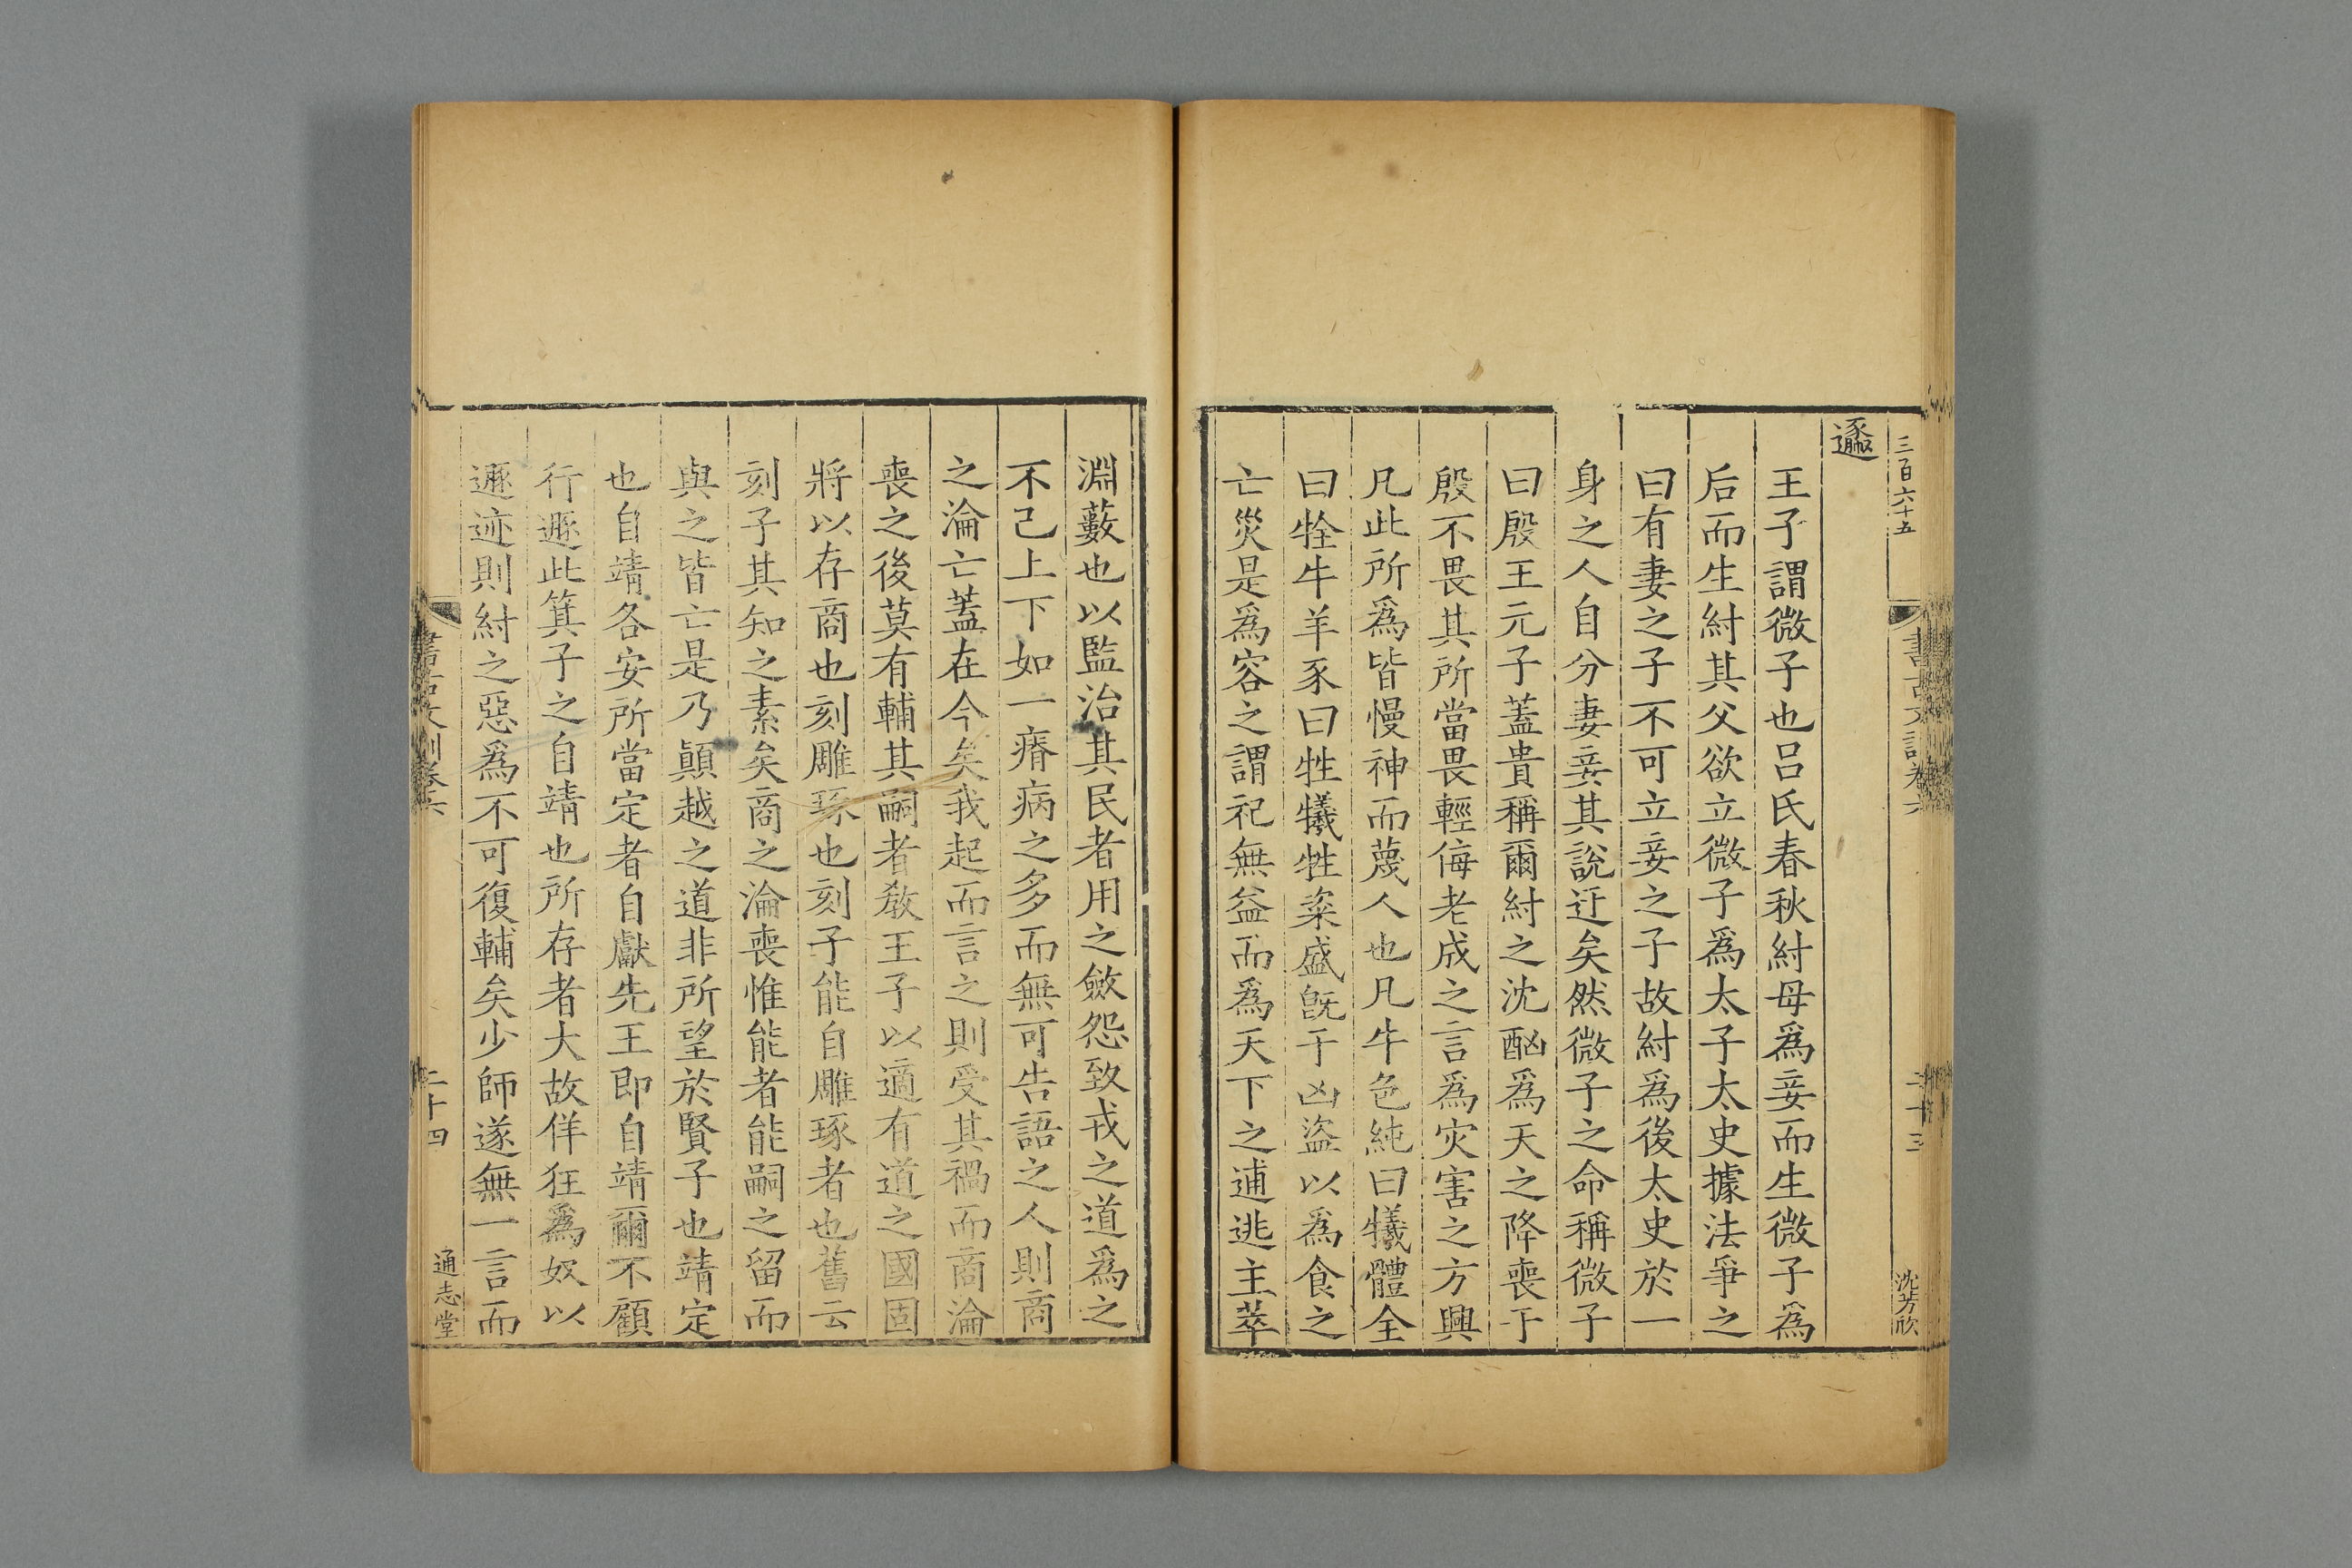 三百六十五
書古文訓卷六
二十三
沈芳欣
王子謂微子也呂氏春秋紂母爲妾而生微子爲
后而生紂其父欲立微子爲太子太史據法爭之
曰有妻之子不可立妾之子故紂爲後太史於一
身之人自分妻妾其說迂矣然微子之命稱微子
曰殷王元子蓋貴稱爾紂之沈酗爲天之降喪于
殷不畏其所當畏輕侮老成之言爲灾害之方興
凡此所爲皆慢神而蔑人也凡牛色純曰犧體全
曰牷牛羊豕曰牲犧牲粢盛旣于凶盜以爲食之
亡災是爲容之謂祀無益而爲天下之逋逃主萃
淵藪也以監治其民者用之斂怨致戎之道爲之
不己上下如一瘠病之多而無可告語之人則商
之淪亡蓋在今矣我起而言之則受其禍而商淪
喪之後莫有輔其嗣者敎王子以適有道之國固
將以存商也刻雕琢也刻子能自雕琢者也舊云
刻子其知之素矣商之淪喪惟能者能嗣之留而
與之皆亡是乃顚越之道非所望於賢子也靖定
也自靖各安所當定者自獻先王即自靖爾不顧
行遯此箕子之自靖也所存者大故佯狂爲奴以
遯迹則紂之惡爲不可復輔矣少師遂無一言而
書古文訓卷六
二十四
通志堂